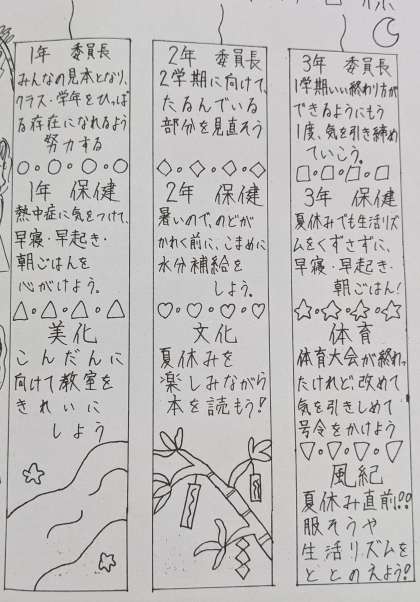 1年 委員長
みんなの見本となり、
クラス・学年をひっぱ
る存在になれるよう
努力する
1年 保健
熱中症に気をつけて、
早寝・早起き・
朝ごはんを
心がけよう。
美化
こんだんに
向けて教室を
きれいに
しよう
2年 委員長
2学期に向けて、
たるんでいる
部分を見直そう
2年 保健
暑いので、のどが
かれく前に、こまめに
水分補給を
しよう。
文化
夏休みを
楽しみながら
本を読もう!
3年 委員長
1学期いい終わり方が
できるようにもう
1度、気を引き締め
ていこう。
3年 保健
夏休みでも生活リズ
ムをくずさずに、
早寝・早起き・
朝ごはん!
体育
体育大会が終わっ
たけれど、改めて
気を引きしめて
号令をかけよう
風紀
夏休み直前!!
服そうや
生活リズムを
ととのえよう!